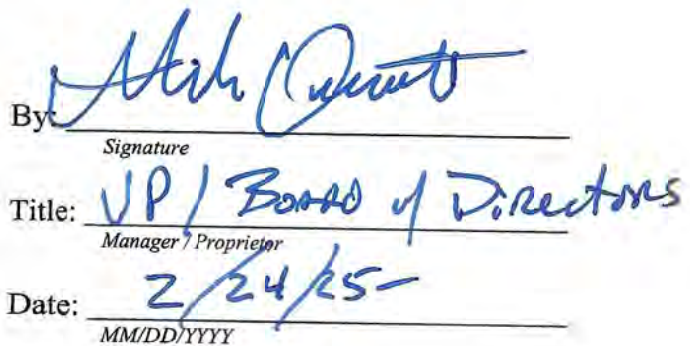 By:
Signature
Title: VP / Board of Directors
Manager / Proprietor
Date: 2/24/25
MM/DD/YYYY